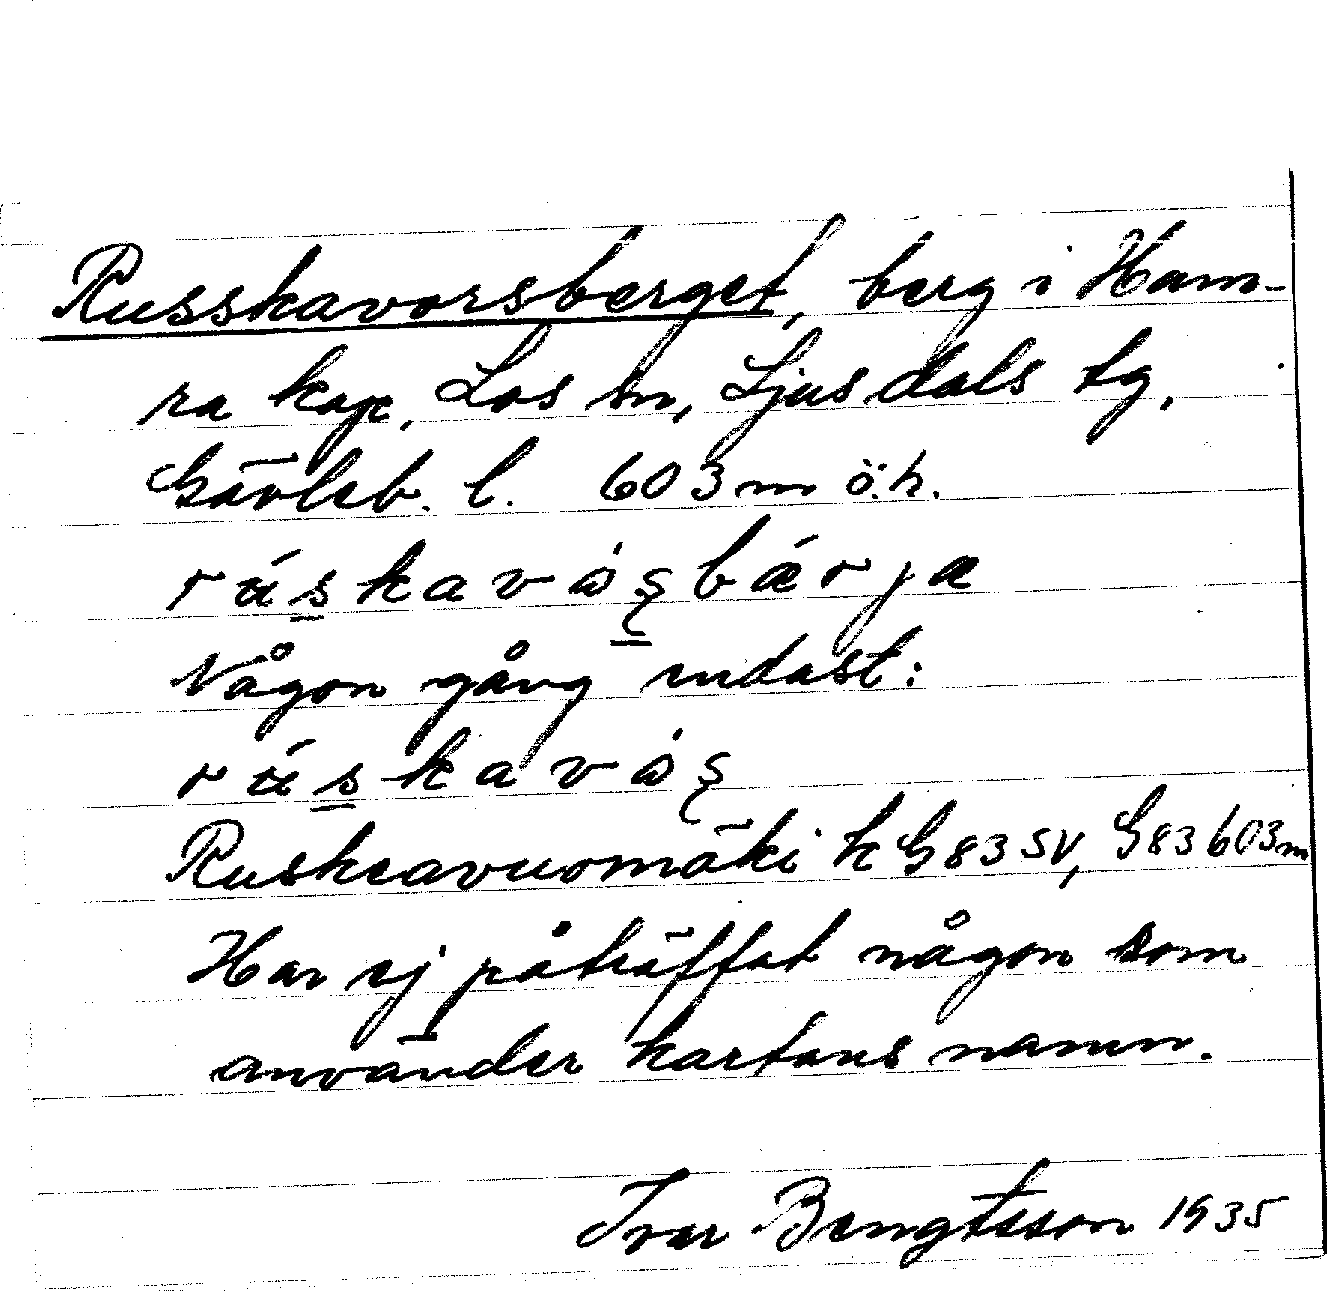 Russkavorsberget, berg i Ham-
ra kap. Los sn, Ljusdals tg,
Gävleb. l. 603 m ö.h.
Någon gång endast:
Ruskeavuomäki k G83SV, G83 603m
Har ej påträffat någon som
använder kartans namn.
Ivar Bengtsson 1935